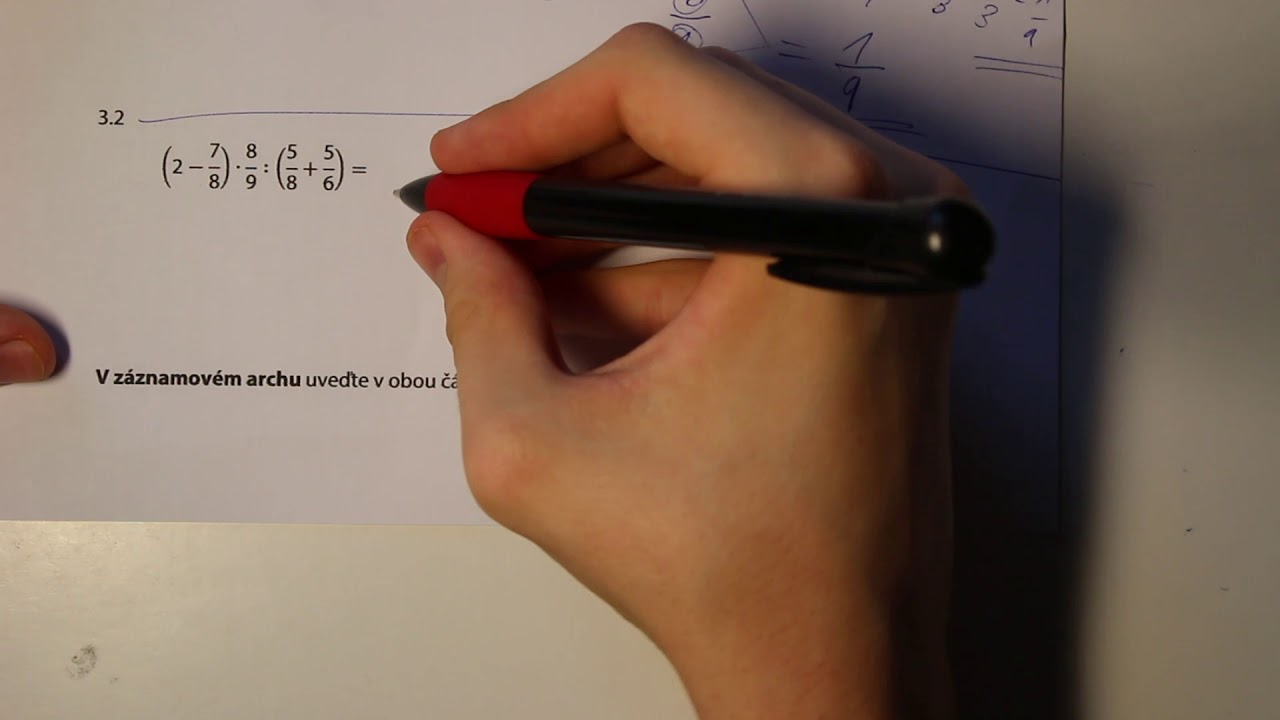 = 1/9
3.2
(2 − 7/8) · 8/9 : (5/8 + 5/6) =
V záznamovém archu uveďte v obou